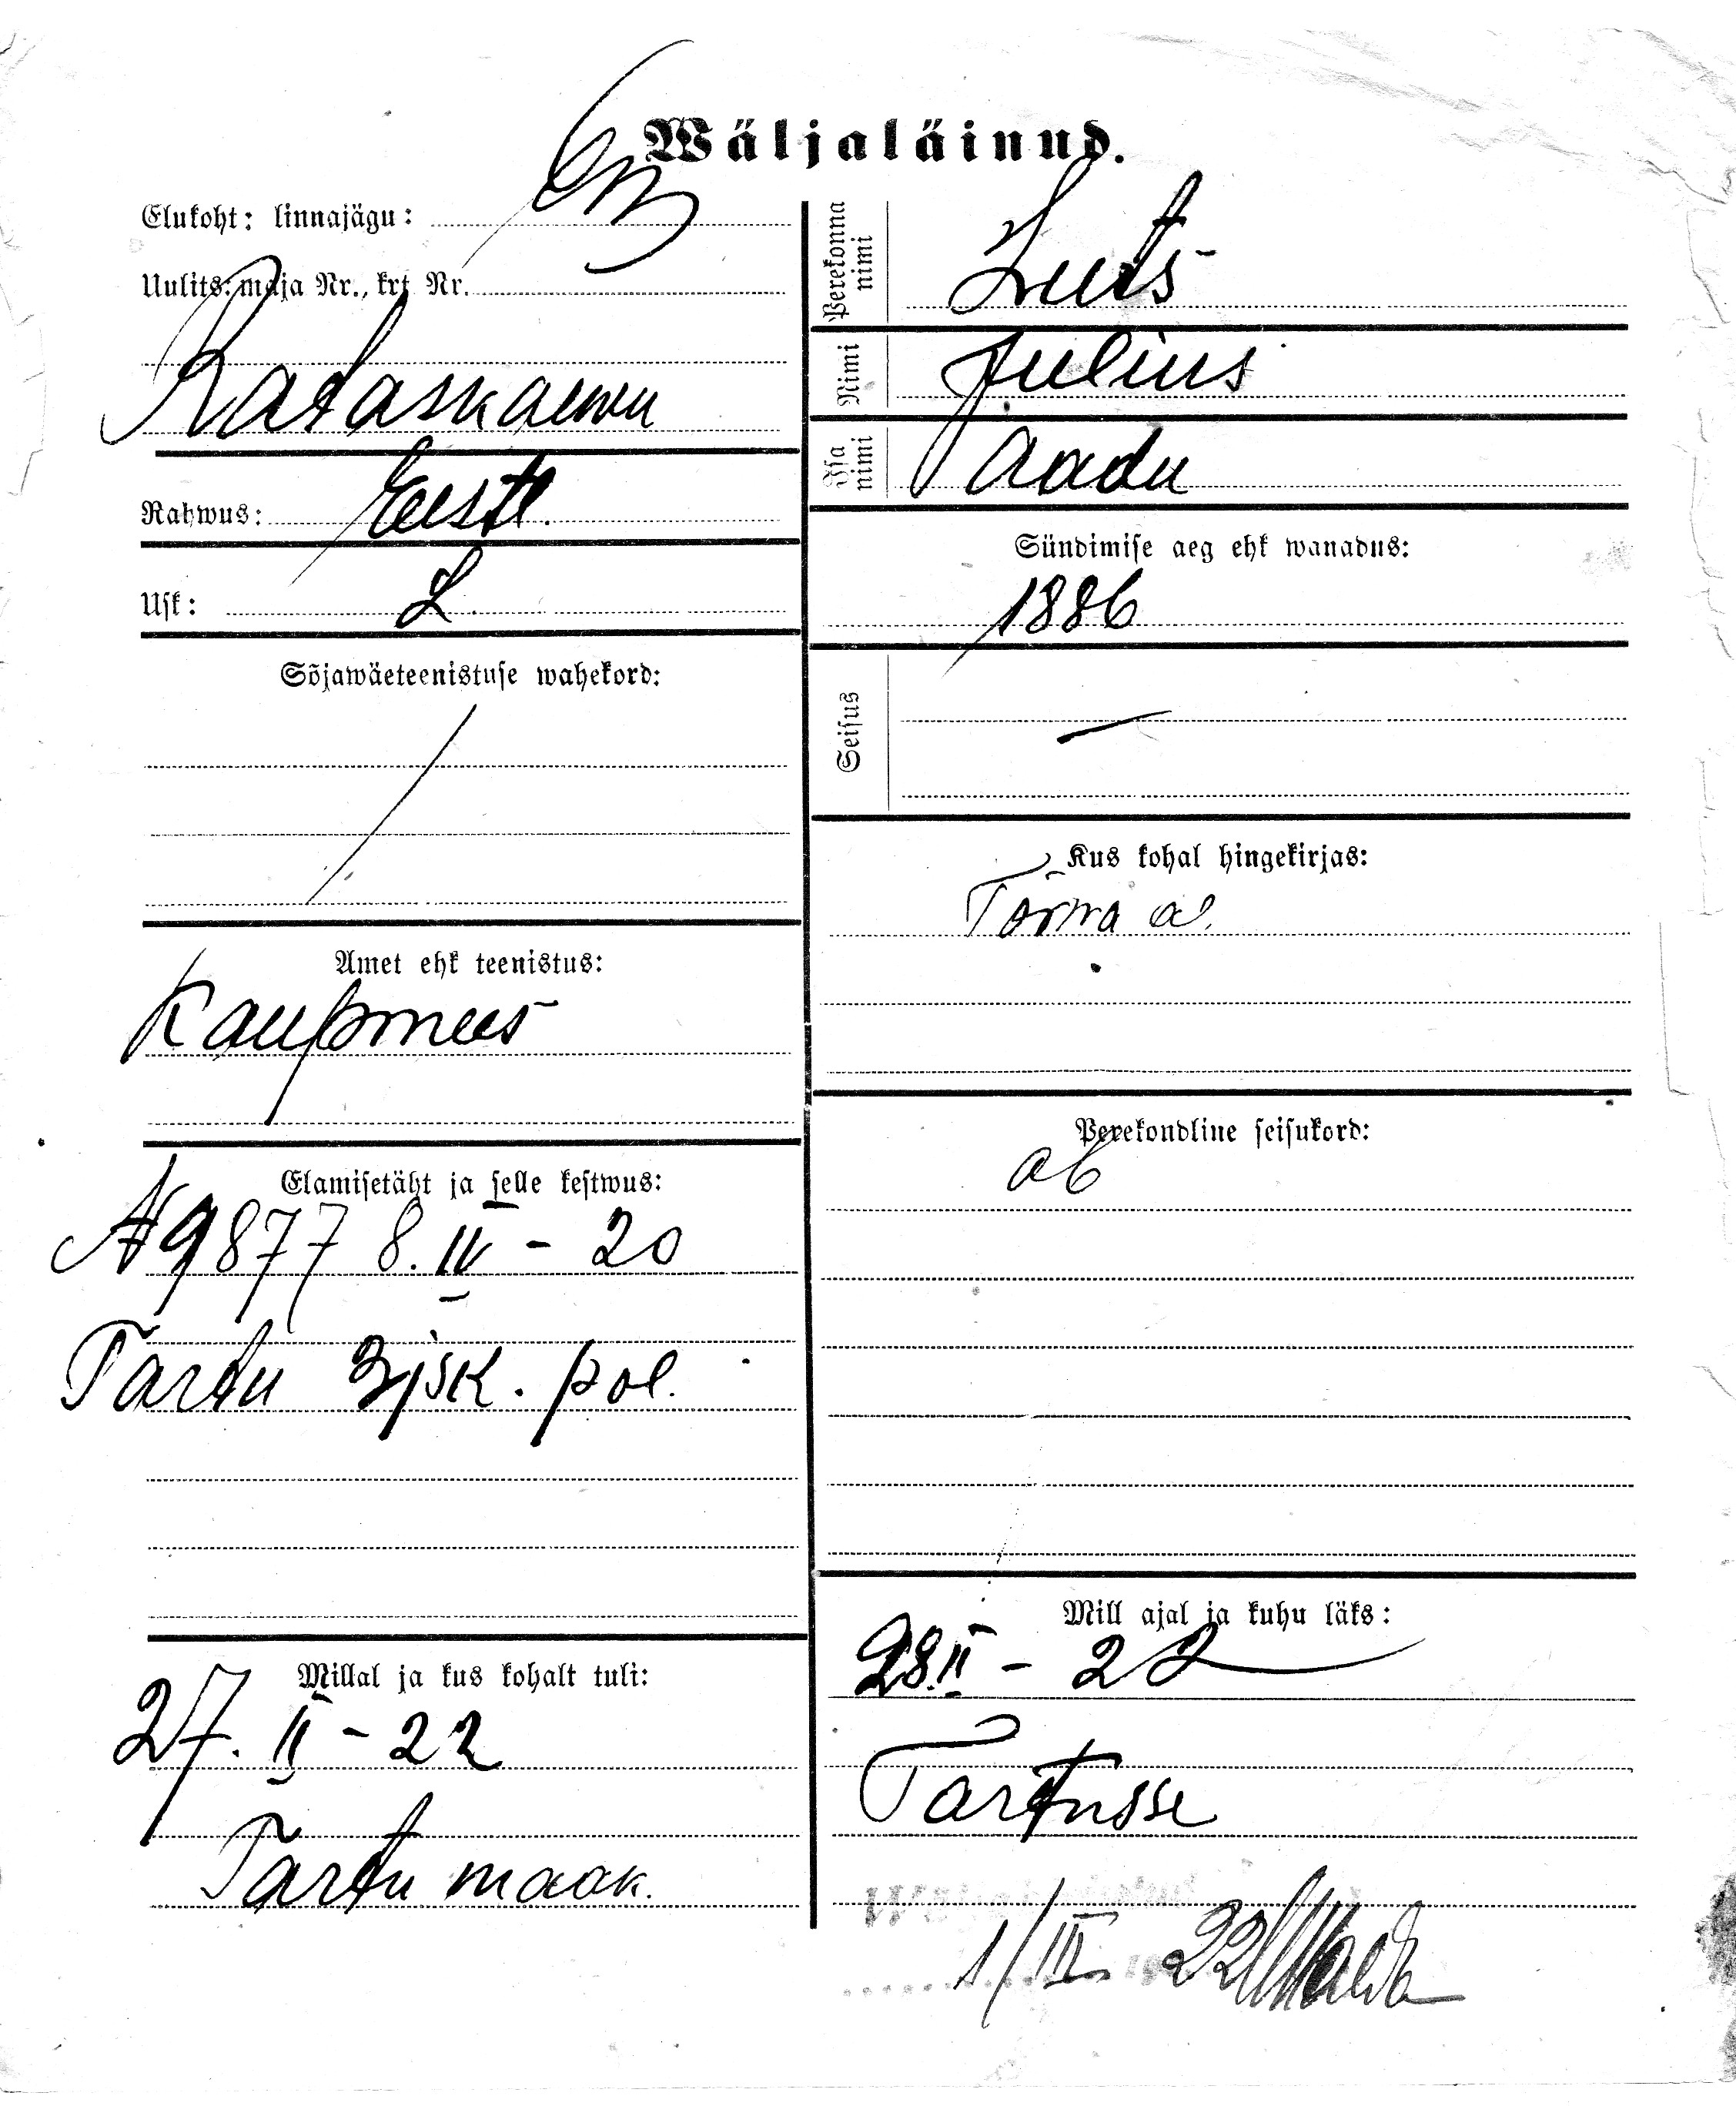 Wäljaläinud.
Elukoht: linnajägu:
Uulits: maja Nr., krt Nr.
Rataskaewu
Rahwus: Eestl.
Usk: L.
Sõjawäeteenistuse wahekord:
Amet ehk teenistus:
Kaupmees
Elamisetäht ja selle kestwus:
N 9877 8. IV - 20
Tartu 3 jsk. pol.
Millal ja kus kohalt tuli:
27. II - 22
Tartu maak.
Perekonna nimi
Luts
Nimi
Julius
Isa nimi
Aadu
Sündimise aeg ehk wanadus:
1886
Seisus
—
Kus kohal hingekirjas:
Torma
Perekondline seisukord:
ab
Mill ajal ja kuhu läks:
28. II - 22
Tartusse
1/III 22